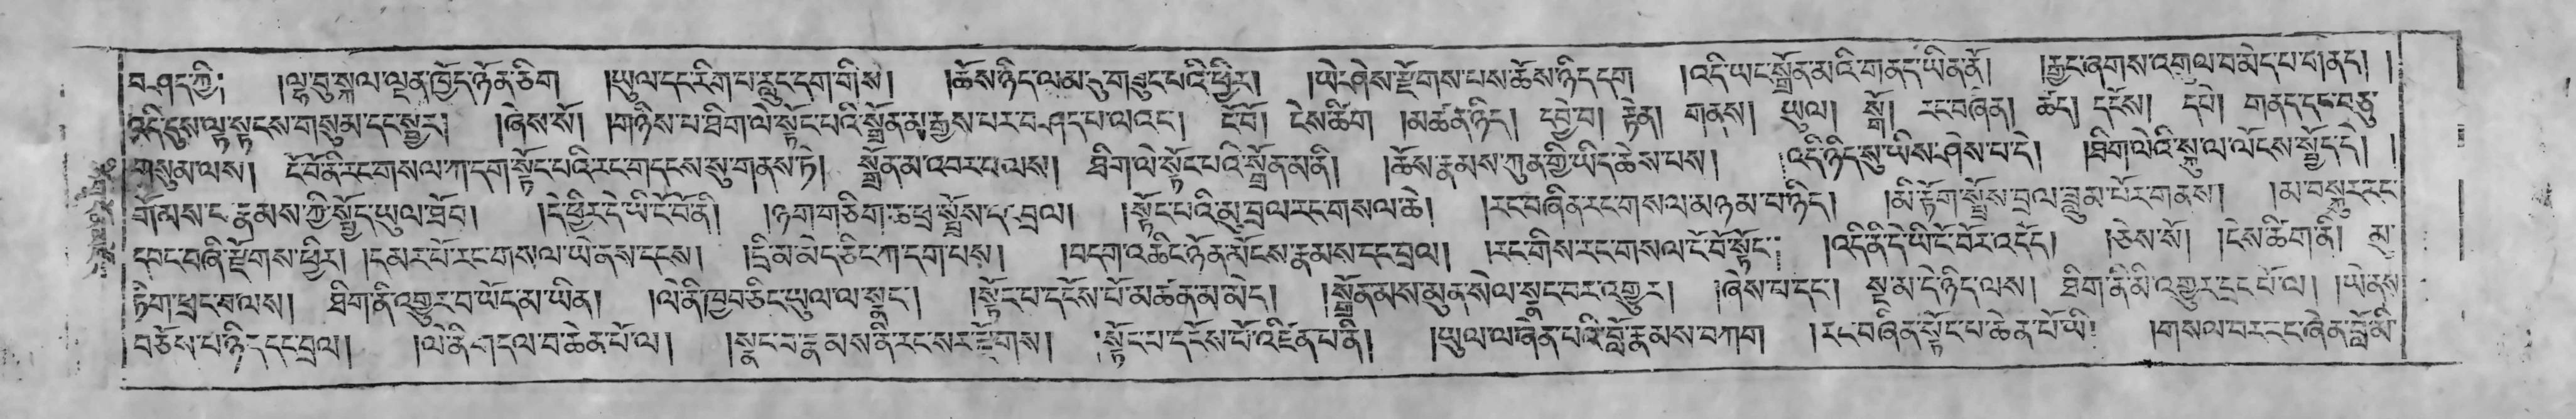 བ་ཤད་ཀྱི། །ལྷ་བུ་སྐལ་ལྡན་ཁྱོད་ཉོན་ཅིག །ཡུལ་དང་རིག་པ་རླུང་དག་གིས། །ཆོས་ཉིད་ལམ་དུ་གཟུང་པའི་ཕྱིར། །ཡེ་ཤེས་རྫོགས་པས་ཆོས་ཉིད་དག །འདི་ཡང་སྒྲོན་མའི་གནད་ཡིན་ནོ། །རྒྱང་ཞགས་འགུལ་བ་མེད་པ་གནད། །
འདི་དུས་ལྟ་སྟངས་གསུམ་དང་སྦྱར། །ཞེས་སོ། །གཉིས་པ་ཐིག་ལེ་སྟོང་པའི་སྒྲོན་མ་རྒྱས་པར་བཤད་པ་ལའང་། ངོ་བོ། ངེས་ཚིག །མཚན་ཉིད། དབྱེ་བ། རྟེན། གནས། ཡུལ། སྒོ། རང་བཞིན། ཚད། དངོས། དཔེ། གནད་དང་བཅུ་
གསུམ་ལས། ངོ་བོ་ནི་རང་གསལ་ཀ་དག་སྟོང་པའི་རང་གདངས་སུ་གནས་ཏེ། སྒྲོན་མ་འབར་བ་ལས། ཐིག་ལེ་སྟོང་པའི་སྒྲོན་མ་ནི། །ཆོས་རྣམས་ཀུན་གྱི་ཡིད་ཆེས་པས། །འདི་ཉིད་སུ་ཡིས་ཤེས་པ་དེ། །ཐིག་ལེའི་སྐུ་ལ་ལོངས་སྤྱོད་དེ། །
གོམས་པ་རྣམས་ཀྱི་སྤྱོད་ཡུལ་ཐོབ། །དེ་ཕྱིར་དེ་ཡི་ངོ་བོ་ནི། །ཉག་གཅིག་ཆ་ཕྲ་སྤྲོས་དང་བྲལ། །སྟོང་པའི་མུ་བྲལ་རང་གསལ་ཆེ། །རང་བཞིན་རང་གསལ་མ་ཉམ་པ་ཉིད། །མི་རྟོག་སྤྲོས་བྲལ་ཟླུམ་པོར་གནས། །མ་བསྐུར་རང་
དབང་བཞི་རྫོགས་ཕྱིར། །དམར་པོ་རང་གསལ་ཡེ་ནས་དངས། །དྲི་མ་མེད་ཅིང་ཀ་དག་པས། །བདག་འཆིང་ཉོན་མོངས་རྣམས་དང་བྲལ། །རང་གིས་རང་གསལ་ངོ་བོ་སྟོང་། །འདི་ནི་དེ་ཡི་ངོ་བོར་འདོད། །ཅེས་སོ། །ངེས་ཚིག་ནི། མུ་
ཏིག་ཕྲང་བ་ལས། ཐིག་ནི་འགྱུར་བ་ཡོད་མ་ཡིན། །ལེ་ནི་ཁྱབ་ཅིང་ཡུལ་ལ་སྣང་། །སྟོང་པ་དངོས་པོ་མཚན་མ་མེད། །སྒྲོན་མས་མུན་སེལ་སྣང་བར་འགྱུར། །ཞེས་པ་དང་། སྔ་མ་དེ་ཉིད་ལས། ཐིག་ནི་མི་འགྱུར་དྲང་པོ་ལ། །ཡེ་ནས་
བཅོས་པ་ཉིད་དང་བྲལ། །ལེ་ནི་གདལ་བ་ཆེན་པོ་ལ། །སྣང་བ་རྣམས་ནི་རང་སར་རྫོགས། །སྟོང་པ་དངོས་པོ་འཛིན་པ་ནི། །ཡུལ་ལ་ཞེན་པའི་བློ་རྣམས་བཀག །རང་བཞིན་སྟོང་པ་ཆེན་པོ་ཡི། །གསལ་བ་རང་ཞེན་བློ་མི་